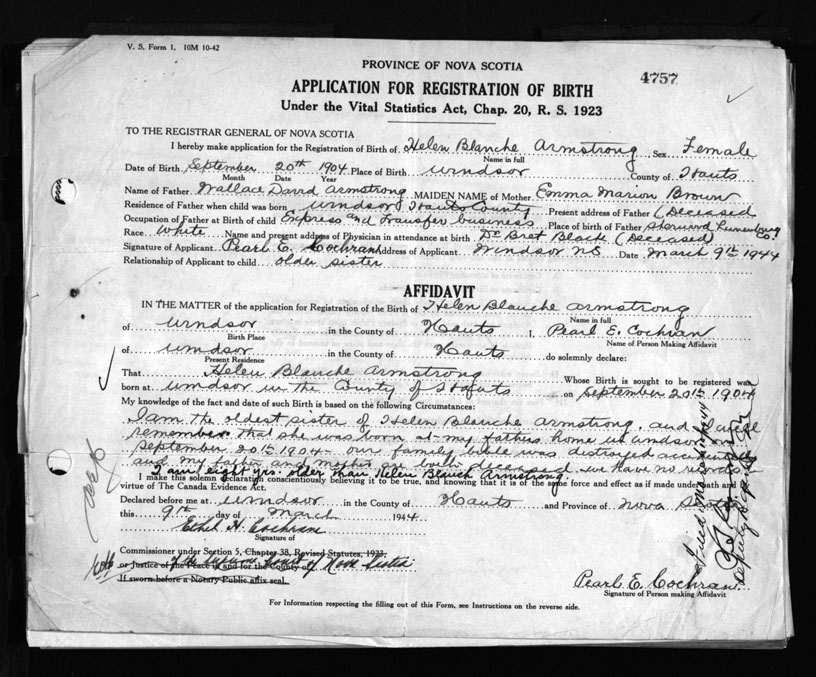 V. S. Form 1. 10M 10-42
PROVINCE OF NOVA SCOTIA
4757
APPLICATION FOR REGISTRATION OF BIRTH
Under the Vital Statistics Act, Chap. 20, R. S. 1923
TO THE REGISTRAR GENERAL OF NOVA SCOTIA
I hereby make application for the Registration of Birth of Helen Blanche Armstrong Sex Female
Name in full
Date of Birth September 20th 1904 Place of Birth Windsor County of Hants
Month Date Year
Name of Father Wallace David Armstrong MAIDEN NAME of Mother Emma Marion Brown
Residence of Father when child was born Windsor Hants County Present address of Father (Deceased
Occupation of Father at Birth of child Express and Transfer business Place of birth of Father Sherwood Lunenburg Co.
Race White Name and present address of Physician in attendance at birth Dr Bret Black (Deceased)
Signature of Applicant Pearl E. Cochran Address of Applicant Windsor N.S. Date March 9th 1944
Relationship of Applicant to child older sister
AFFIDAVIT
IN THE MATTER of the application for Registration of the Birth of Helen Blanche Armstrong
Name in full
of Windsor in the County of Hants I, Pearl E. Cochran
Birth Place Name of Person Making Affidavit
of Windsor in the County of Hants do solemnly declare:
Present Residence
That Helen Blanche Armstrong Whose Birth is sought to be registered was
born at Windsor in the County of Hants on September 20th 1904
My knowledge of the fact and date of such Birth is based on the following Circumstances:
I am the oldest sister of Helen Blanche Armstrong, and well
remember that she was born at my fathers home in Windsor on
September 20th 1904 - our family bible was distroyed accidently
and my father and mother have both deceased we have no records
I am eight yrs. older than Helen Blanch Armstrong.
I make this solemn declaration conscientiously believing it to be true, and knowing that it is of the same force and effect as if made under oath and by
virtue of The Canada Evidence Act.
Declared before me at Windsor in the County of Hants and Province of Nova Scotia
this 9th day of March 1944
Ethel H. Cochran
Signature of
Commissioner under Section 5, Chapter 38, Revised Statutes, 1923,
or Justice of the Peace in and for the County of
of the Supreme Court of Nova Scotia
If sworn before a Notary Public affix seal.
Pearl E. Cochran
Signature of Person making Affidavit
For Information respecting the filling out of this Form, see Instructions on the reverse side.